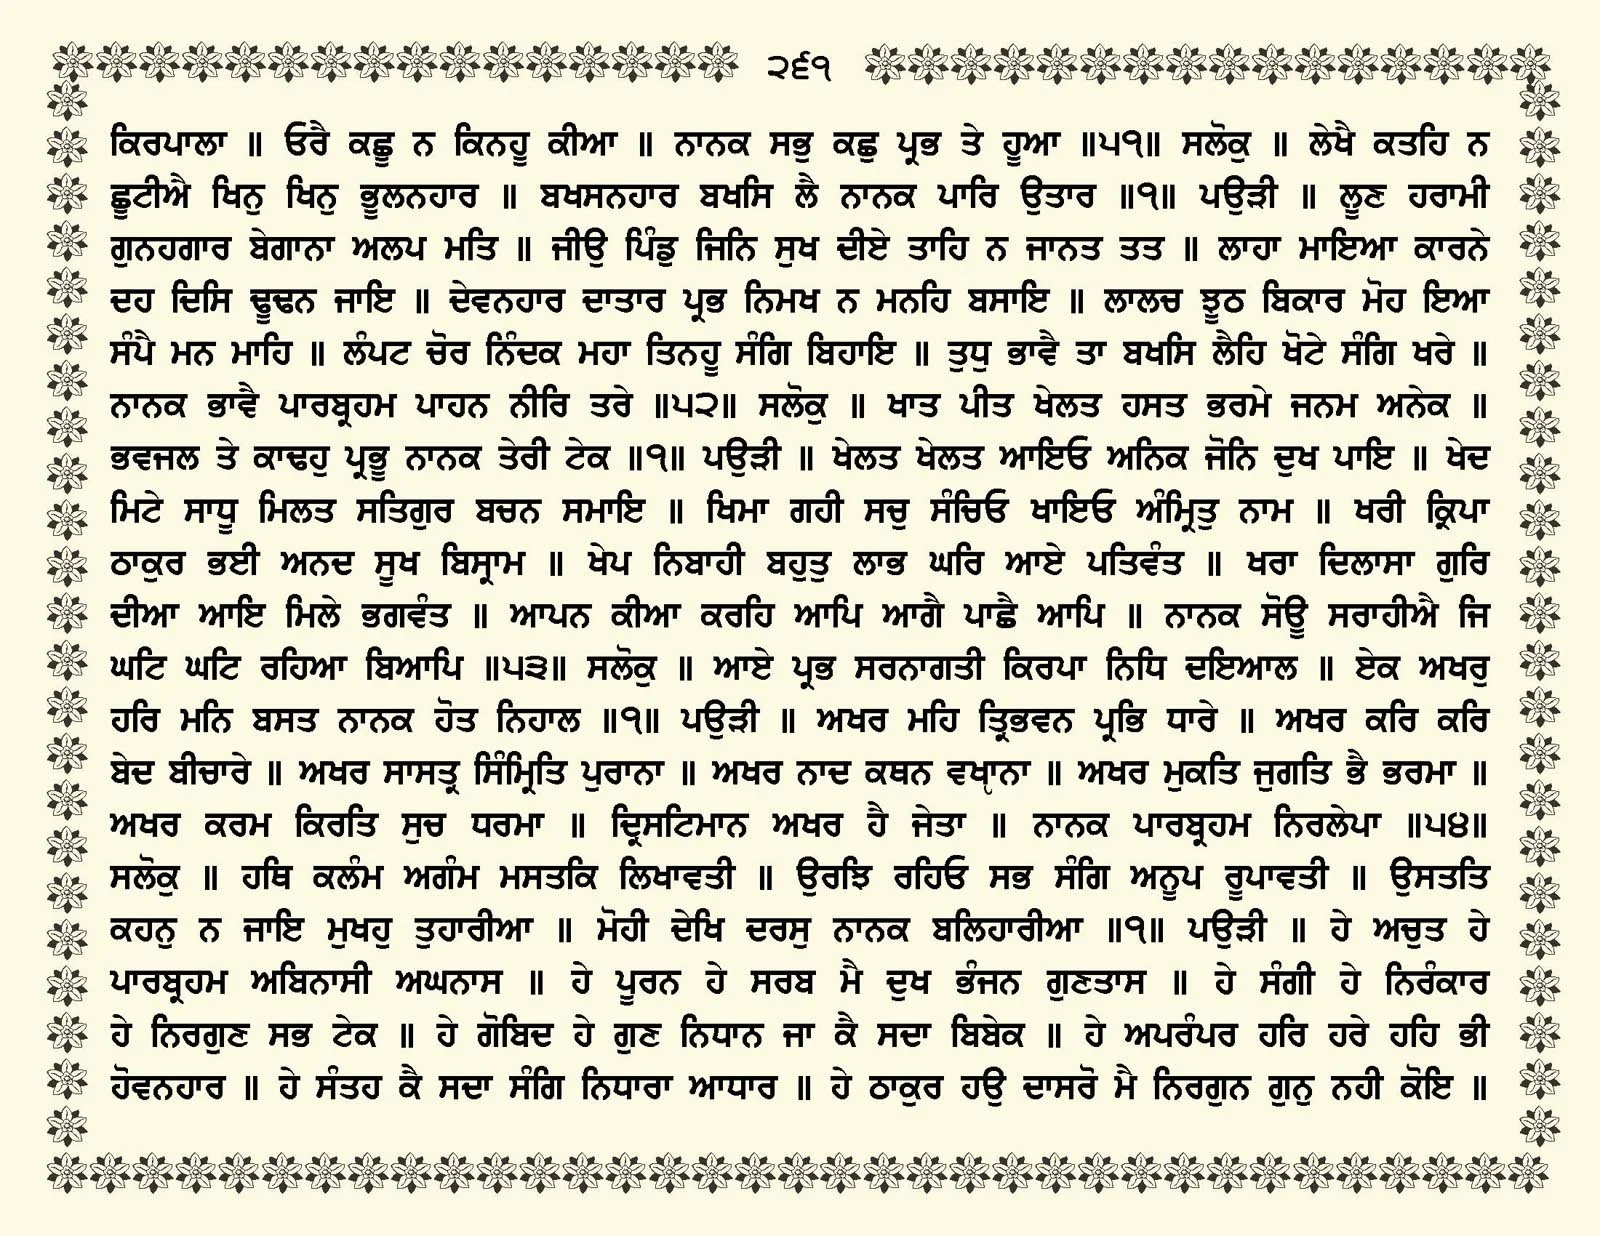 ੨੬੧
ਕਿਰਪਾਲਾ ॥ ਓਰੈ ਕਛੂ ਨ ਕਿਨਹੂ ਕੀਆ ॥ ਨਾਨਕ ਸਭੁ ਕਛੁ ਪ੍ਰਭ ਤੇ ਹੂਆ ॥੫੧॥ ਸਲੋਕੁ ॥ ਲੇਖੈ ਕਤਹਿ ਨ
ਛੂਟੀਐ ਖਿਨੁ ਖਿਨੁ ਭੂਲਨਹਾਰ ॥ ਬਖਸਨਹਾਰ ਬਖਸਿ ਲੈ ਨਾਨਕ ਪਾਰਿ ਉਤਾਰ ॥੧॥ ਪਉੜੀ ॥ ਲੂਣ ਹਰਾਮੀ
ਗੁਨਹਗਾਰ ਬੇਗਾਨਾ ਅਲਪ ਮਤਿ ॥ ਜੀਉ ਪਿੰਡੁ ਜਿਨਿ ਸੁਖ ਦੀਏ ਤਾਹਿ ਨ ਜਾਨਤ ਤਤ ॥ ਲਾਹਾ ਮਾਇਆ ਕਾਰਨੇ
ਦਹ ਦਿਸਿ ਢੂਢਨ ਜਾਇ ॥ ਦੇਵਨਹਾਰ ਦਾਤਾਰ ਪ੍ਰਭ ਨਿਮਖ ਨ ਮਨਹਿ ਬਸਾਇ ॥ ਲਾਲਚ ਝੂਠ ਬਿਕਾਰ ਮੋਹ ਇਆ
ਸੰਪੈ ਮਨ ਮਾਹਿ ॥ ਲੰਪਟ ਚੋਰ ਨਿੰਦਕ ਮਹਾ ਤਿਨਹੂ ਸੰਗਿ ਬਿਹਾਇ ॥ ਤੁਧੁ ਭਾਵੈ ਤਾ ਬਖਸਿ ਲੈਹਿ ਖੋਟੇ ਸੰਗਿ ਖਰੇ ॥
ਨਾਨਕ ਭਾਵੈ ਪਾਰਬ੍ਰਹਮ ਪਾਹਨ ਨੀਰਿ ਤਰੇ ॥੫੨॥ ਸਲੋਕੁ ॥ ਖਾਤ ਪੀਤ ਖੇਲਤ ਹਸਤ ਭਰਮੇ ਜਨਮ ਅਨੇਕ ॥
ਭਵਜਲ ਤੇ ਕਾਢਹੁ ਪ੍ਰਭੂ ਨਾਨਕ ਤੇਰੀ ਟੇਕ ॥੧॥ ਪਉੜੀ ॥ ਖੇਲਤ ਖੇਲਤ ਆਇਓ ਅਨਿਕ ਜੋਨਿ ਦੁਖ ਪਾਇ ॥ ਖੇਦ
ਮਿਟੇ ਸਾਧੂ ਮਿਲਤ ਸਤਿਗੁਰ ਬਚਨ ਸਮਾਇ ॥ ਖਿਮਾ ਗਹੀ ਸਚੁ ਸੰਚਿਓ ਖਾਇਓ ਅੰਮ੍ਰਿਤੁ ਨਾਮ ॥ ਖਰੀ ਕ੍ਰਿਪਾ
ਠਾਕੁਰ ਭਈ ਅਨਦ ਸੂਖ ਬਿਸ੍ਰਾਮ ॥ ਖੇਪ ਨਿਬਾਹੀ ਬਹੁਤੁ ਲਾਭ ਘਰਿ ਆਏ ਪਤਿਵੰਤ ॥ ਖਰਾ ਦਿਲਾਸਾ ਗੁਰਿ
ਦੀਆ ਆਇ ਮਿਲੇ ਭਗਵੰਤ ॥ ਆਪਨ ਕੀਆ ਕਰਹਿ ਆਪਿ ਆਗੈ ਪਾਛੈ ਆਪਿ ॥ ਨਾਨਕ ਸੋਊ ਸਰਾਹੀਐ ਜਿ
ਘਟਿ ਘਟਿ ਰਹਿਆ ਬਿਆਪਿ ॥੫੩॥ ਸਲੋਕੁ ॥ ਆਏ ਪ੍ਰਭ ਸਰਨਾਗਤੀ ਕਿਰਪਾ ਨਿਧਿ ਦਇਆਲ ॥ ਏਕ ਅਖਰੁ
ਹਰਿ ਮਨਿ ਬਸਤ ਨਾਨਕ ਹੋਤ ਨਿਹਾਲ ॥੧॥ ਪਉੜੀ ॥ ਅਖਰ ਮਹਿ ਤ੍ਰਿਭਵਨ ਪ੍ਰਭਿ ਧਾਰੇ ॥ ਅਖਰ ਕਰਿ ਕਰਿ
ਬੇਦ ਬੀਚਾਰੇ ॥ ਅਖਰ ਸਾਸਤ੍ਰ ਸਿੰਮ੍ਰਿਤਿ ਪੁਰਾਨਾ ॥ ਅਖਰ ਨਾਦ ਕਥਨ ਵਖ੍ਯਾਨਾ ॥ ਅਖਰ ਮੁਕਤਿ ਜੁਗਤਿ ਭੈ ਭਰਮਾ ॥
ਅਖਰ ਕਰਮ ਕਿਰਤਿ ਸੁਚ ਧਰਮਾ ॥ ਦ੍ਰਿਸਟਿਮਾਨ ਅਖਰ ਹੈ ਜੇਤਾ ॥ ਨਾਨਕ ਪਾਰਬ੍ਰਹਮ ਨਿਰਲੇਪਾ ॥੫੪॥
ਸਲੋਕੁ ॥ ਹਥਿ ਕਲੰਮ ਅਗੰਮ ਮਸਤਕਿ ਲਿਖਾਵਤੀ ॥ ਉਰਝਿ ਰਹਿਓ ਸਭ ਸੰਗਿ ਅਨੂਪ ਰੂਪਾਵਤੀ ॥ ਉਸਤਤਿ
ਕਹਨੁ ਨ ਜਾਇ ਮੁਖਹੁ ਤੁਹਾਰੀਆ ॥ ਮੋਹੀ ਦੇਖਿ ਦਰਸੁ ਨਾਨਕ ਬਲਿਹਾਰੀਆ ॥੧॥ ਪਉੜੀ ॥ ਹੇ ਅਚੁਤ ਹੇ
ਪਾਰਬ੍ਰਹਮ ਅਬਿਨਾਸੀ ਅਘਨਾਸ ॥ ਹੇ ਪੂਰਨ ਹੇ ਸਰਬ ਮੈ ਦੁਖ ਭੰਜਨ ਗੁਣਤਾਸ ॥ ਹੇ ਸੰਗੀ ਹੇ ਨਿਰੰਕਾਰ
ਹੇ ਨਿਰਗੁਣ ਸਭ ਟੇਕ ॥ ਹੇ ਗੋਬਿਦ ਹੇ ਗੁਣ ਨਿਧਾਨ ਜਾ ਕੈ ਸਦਾ ਬਿਬੇਕ ॥ ਹੇ ਅਪਰੰਪਰ ਹਰਿ ਹਰੇ ਹਹਿ ਭੀ
ਹੋਵਨਹਾਰ ॥ ਹੇ ਸੰਤਹ ਕੈ ਸਦਾ ਸੰਗਿ ਨਿਧਾਰਾ ਆਧਾਰ ॥ ਹੇ ਠਾਕੁਰ ਹਉ ਦਾਸਰੋ ਮੈ ਨਿਰਗੁਨ ਗੁਨੁ ਨਹੀ ਕੋਇ ॥